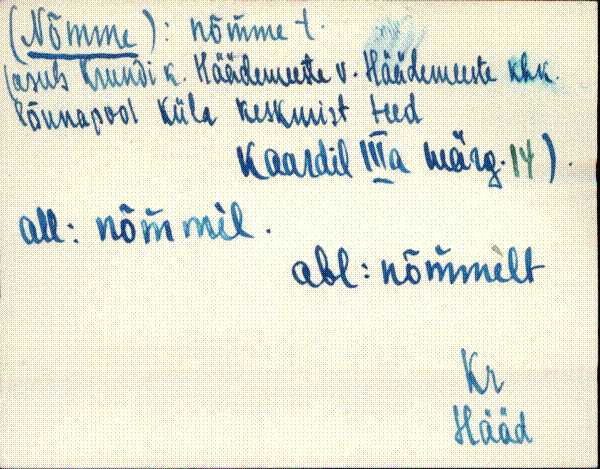 (Nõmme): nõm̆me t.
(asub Krundi k. Häädemeeste v. Häädemeeste khk.
lõunapool küla keskmist teed
Kaardil IIIa märg. 14).
all: nõm̆mèl.
abl: nõm̆mèlt
Kr
Hääd